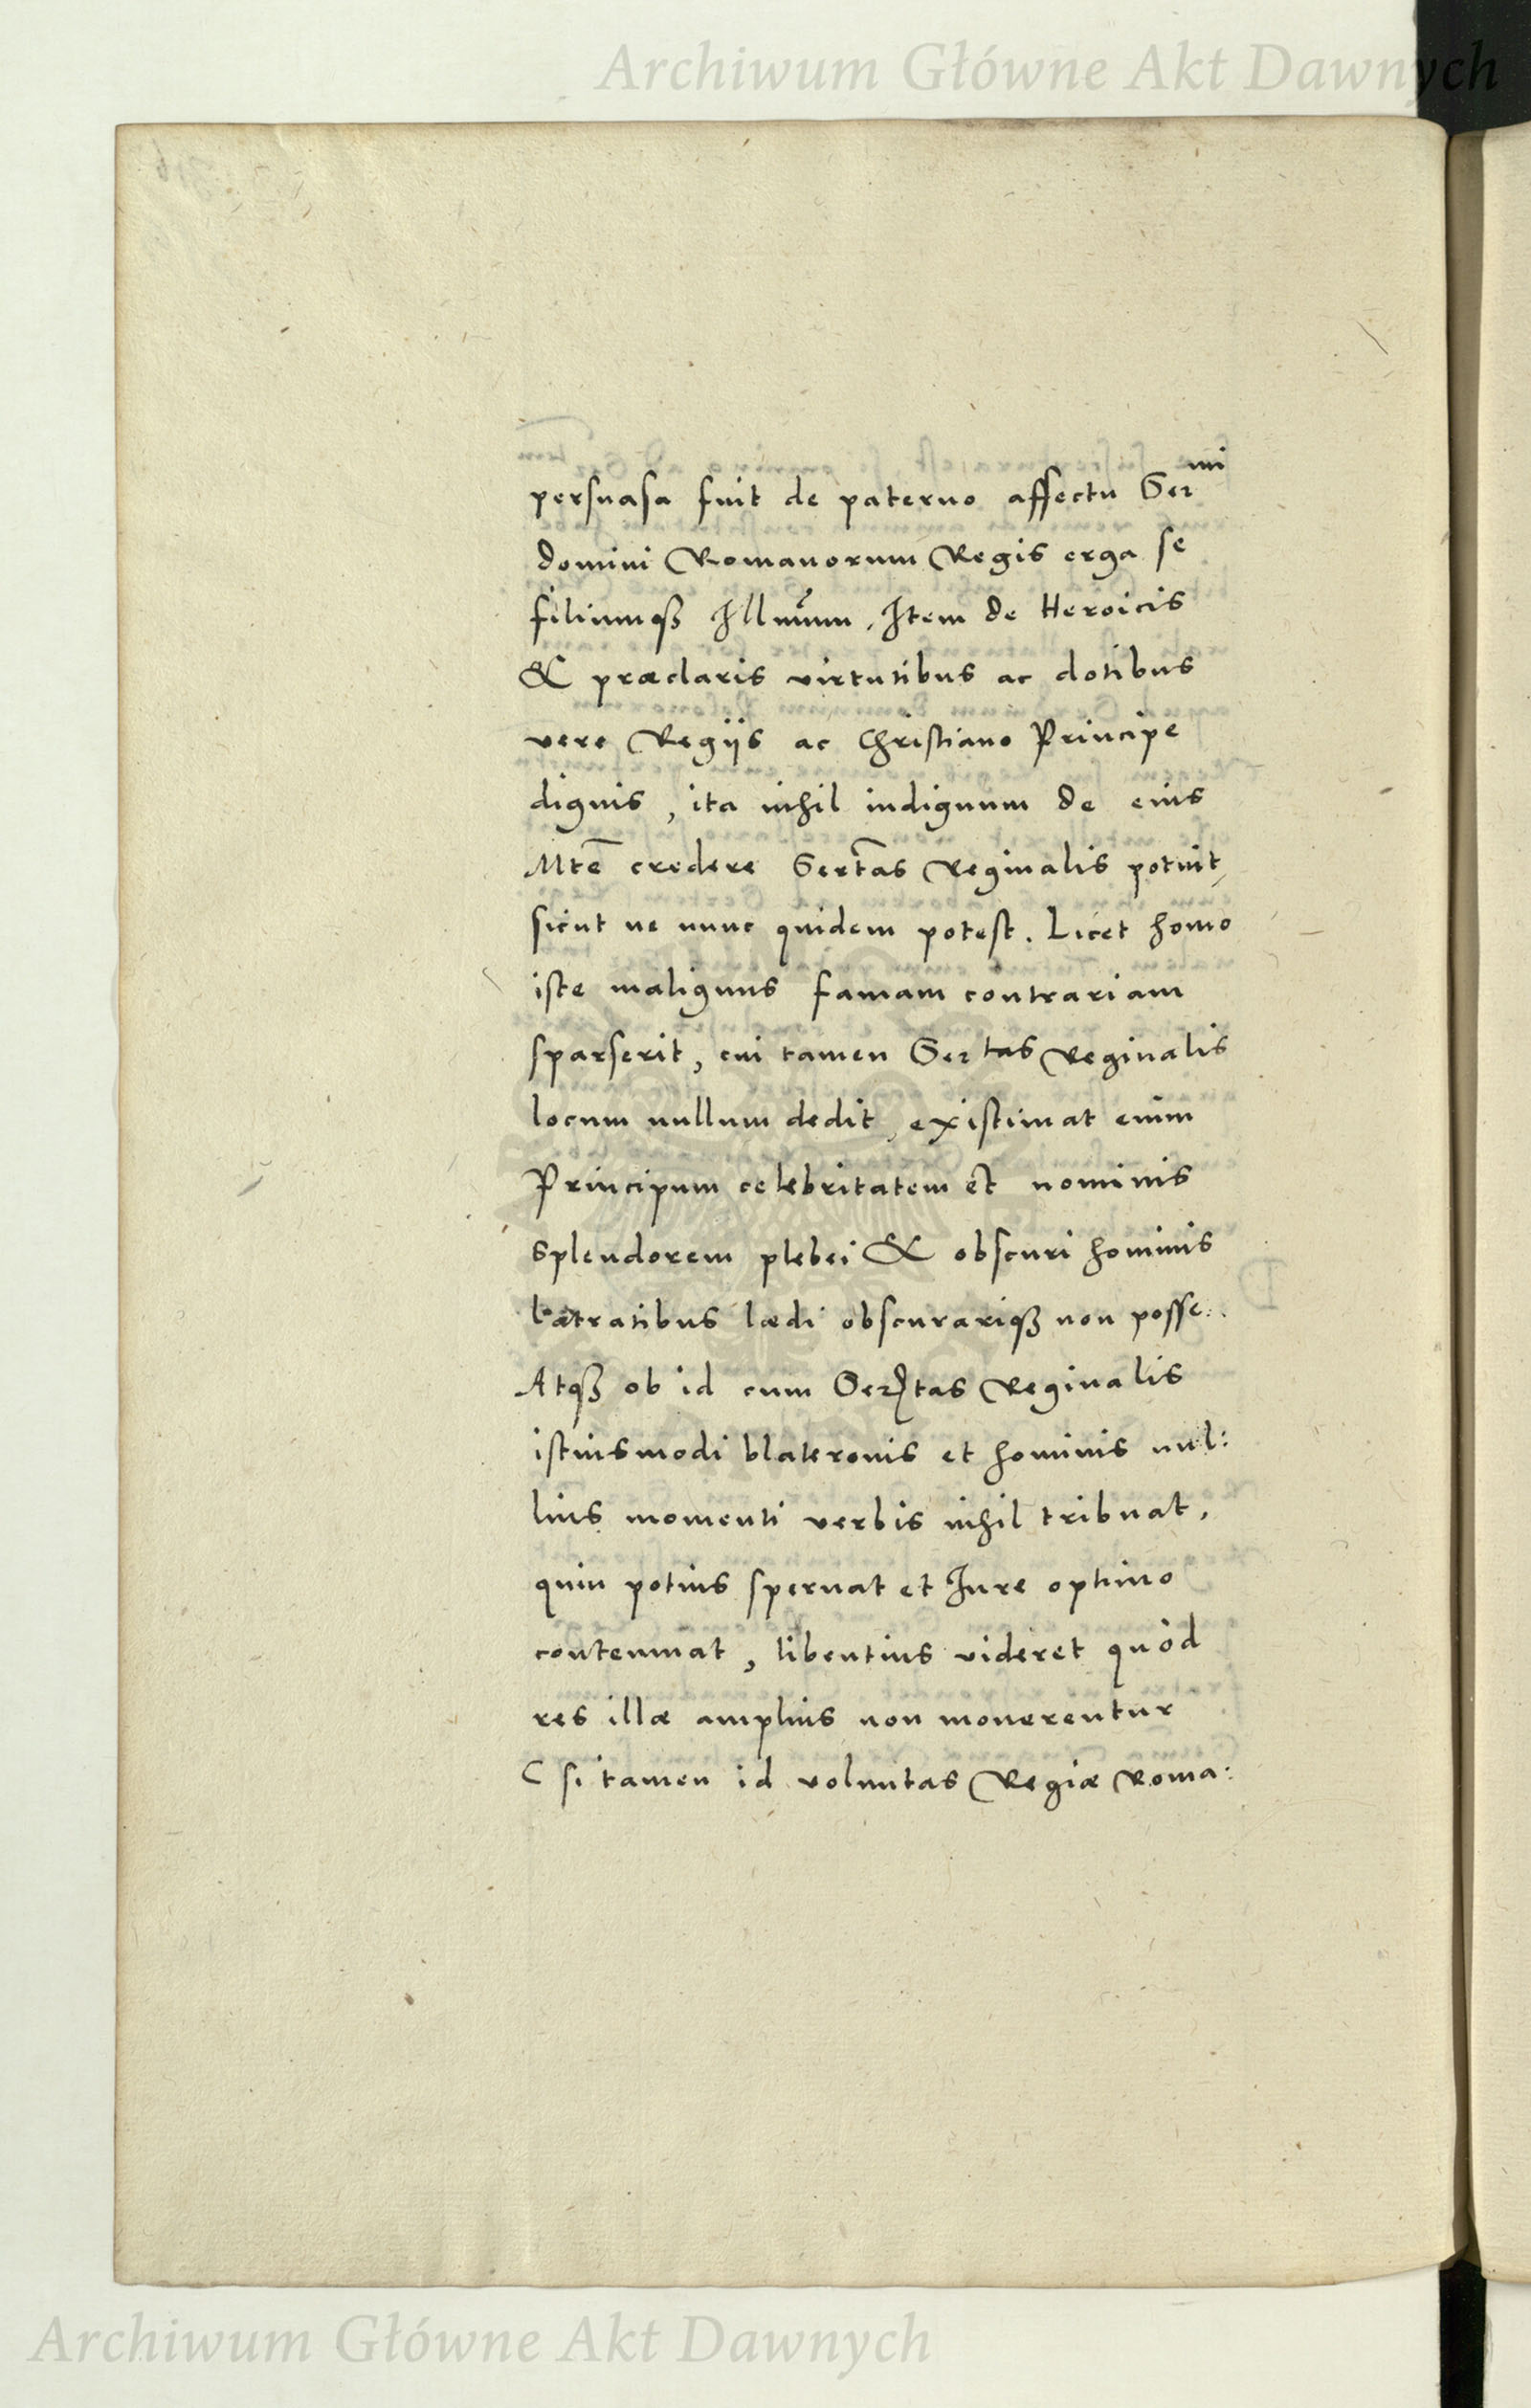 Archiwum Główne Akt Dawnych
persuasa fuit de paterno affectu Ser^mi
domini Romanorum Regis erga se
filiumq̃ Illmũm. Item de Heroicis
& præclaris virtutibus ac dotibus
vere Regijs ac Christiano Principe
dignis, ita nihil indignum de eius
Mtē credere Sert̃as Reginalis potuit,
sicut ne nunc quidem potest. Licet homo
iste malignus famam contrariam
sparserit, cui tamen Sertas Reginalis
locum nullum dedit, existimat enim
Principum celebritatem et nominis
splendorem plebei & obscuri hominis
latratibus lædi obscurariq̃ non posse.
Atq̃ ob id cum Sertas Reginalis
istiusmodi blateronis et hominis nul:
lius momenti verbis nihil tribuat,
quin potius spernat et Iure optimo
contemnat, libentius videret quòd
res illæ amplius non mouerentur
C si tamen id voluntas Regiæ Roma:
Archiwum Główne Akt Dawnych